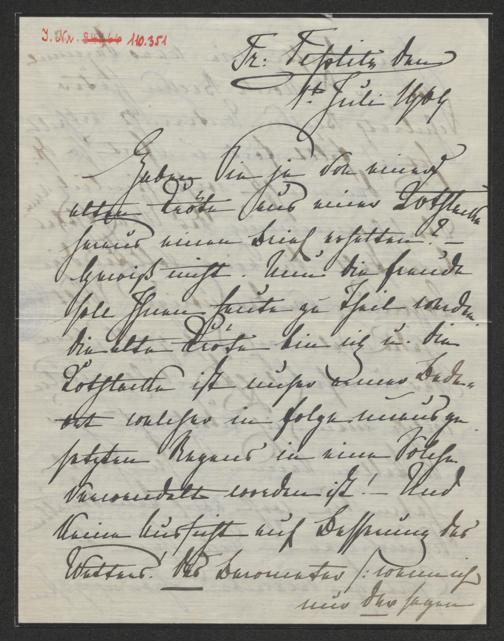 I. Nr. 110.351
Tr: Teplitz den
1t Juli 1909
Haben Sie je von einer
alten Kröte aus einer Kothlacke
heraus einen Brief erhalten? –
Gewiß nicht. Nun die Freude
soll Ihnen heute zu Theil werden
die alte Kröte bin ich u. die
Kothlacke ist unser armer Bade-
ort welcher in folge unausge
setzten Regens in eine Solche
verwandelt worden ist! – Und
keine Aussicht auf Besserung des
Wetters! Das Barometer /: wenn ich
nur das sagen